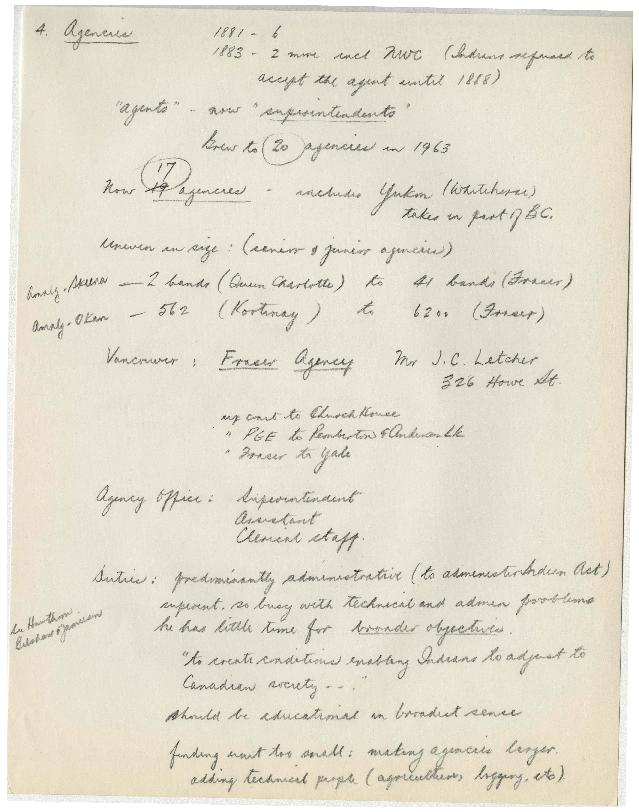 4. Agencies 1881 - 6
1883 - 2 more incl NWC (Indians refused to
accept the agent until 1888)
"agents" - now "superintendents"
Grew to 20 agencies in 1963
17
Now 19 agencies - includes Yukon (Whitehorse)
takes in part of BC.
Uneven in size: (senior & junior agencies)
Amalg. Skeena — 2 bands (Queen Charlotte) to 41 bands (Fraser)
Amalg. Okan — 562 (Kootenay) to 6200 (Fraser)
Vancouver : Fraser Agency Mr J.C. Letcher
326 Howe St.
up coast to Church House
" PGE to Pemberton & Anderson Lk
" Fraser to Yale
Agency Office : Superintendent
Assistant
Clerical staff.
Duties : predominantly administrative (to administer Indian Act)
superint. so busy with technical and admin problems
he has little time for broader objectives.
see Hawthorn
Belshaw & Jamieson
"to create conditions enabling Indians to adjust to
Canadian society - - ."
should be educational in broadest sense
finding unit too small: making agencies larger.
adding technical people (agriculture, logging, etc)